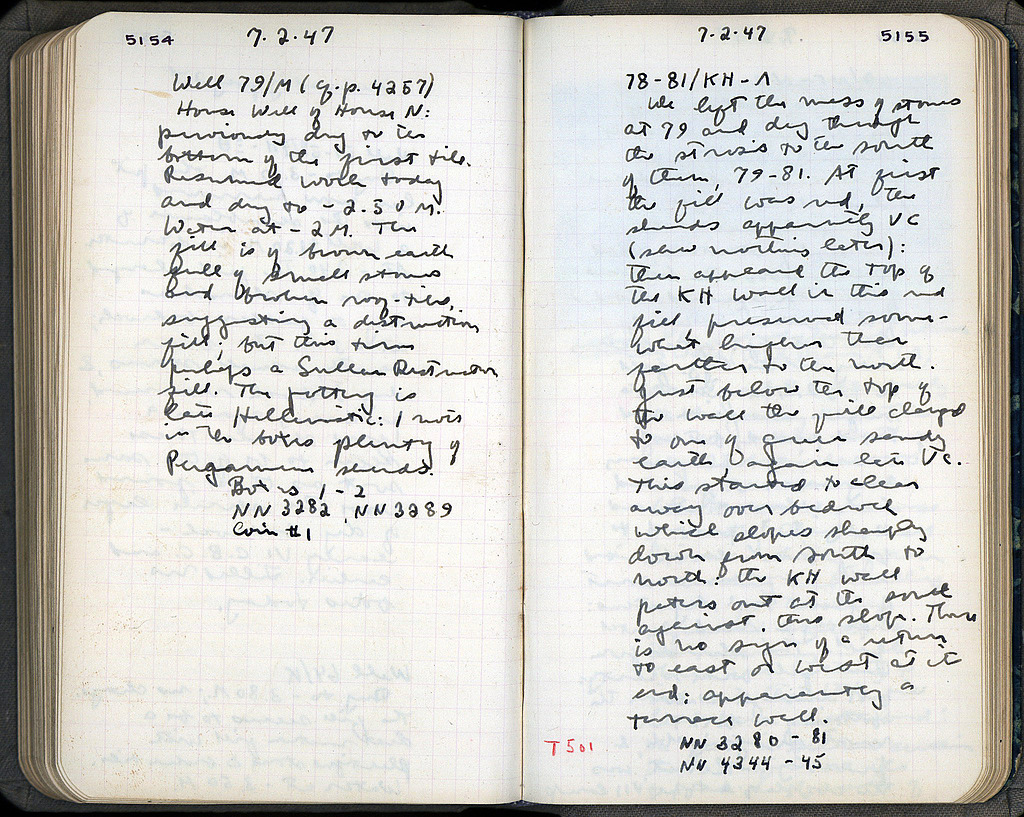 5154
7.2.47
Well 79/M (cf. p. 4257)
House Well of House N:
previously dug to the
bottom of the first tile.
Resumed work today
and dug to - 2.30 M.
Water at - 2 M. The
fill is of brown earth
full of small stones
and broken roof-tiles,
suggesting a destruction
fill; but this time
perhaps a Sullan Destruction
fill. The pottery is
late Hellenistic: I note
in the boxes plenty of
Pergamene sherds.
Boxes 1 - 2
NN 3282, NN 3289
Coin #1
7.2.47
5155
78-81/KH-Λ
We left the mess of stones
at 79 and dug through
the strosis to the south
of them, 79-81. At first
the fill was red, the
sherds apparently VC
(saw nothing later):
then appeared the top of
the KH wall in this red
fill, preserved some-
what higher than
farther to the north.
Just below the top of
the wall the fill changed
to one of green sandy
earth, again late VC.
This started to clear
away over bedrock
which slopes sharply
down from south to
north: the KH wall
peters out at the south
against this slope. There
is no sign of a return
to east or west at its
end; apparently a
terrace wall.
NN 3280 - 81
NN 4344 - 45
T501